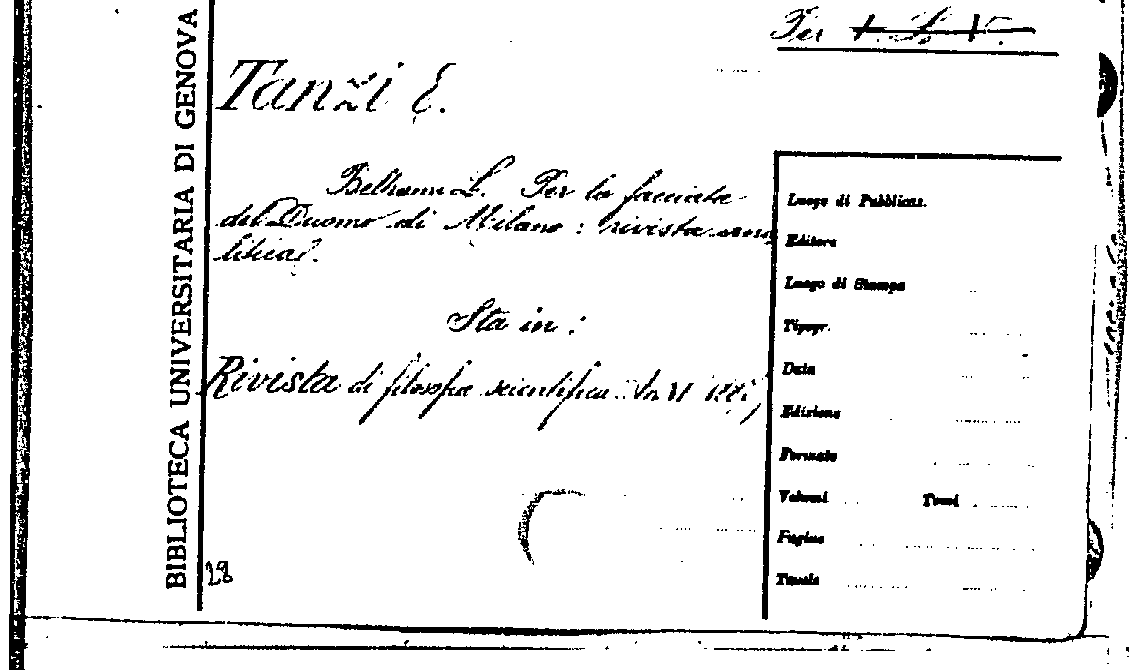 Per
BIBLIOTECA UNIVERSITARIA DI GENOVA
Tanzi E.
Beltrami L. Per la facciata
del Duomo di Milano: rivista ana
litica?.
Sta in:
Rivista di filosofia scientifica. An. VI
28
Luogo di Pubblicaz.
Editore
Luogo di Stampa
Tipogr.
Data
Edizione
Formato
Volumi Tomi
Pagine
Tavole